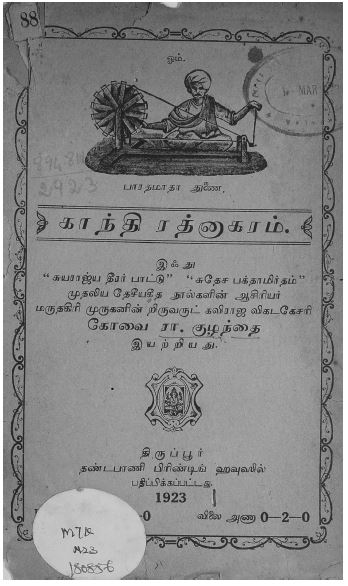 88
ஓம்.
MAR
894.811
2923
பாரதமாதா துணை.
காந்தி ரத்னாகரம்.
இஃது
“சுயராஜ்ய தீரர் பாட்டு” “சுதேச பக்தாமிர்தம்”
முதலிய தேசீயகீத நூல்களின் ஆசிரியர்
மருதகிரி முருகனின் றிருவருட் கவிராஜ விகடகேசரி
கோவை ரா. குழந்தை
இயற்றியது.
திருப்பூர்
தண்டபாணி பிரிண்டிங் ஹவுஸில்
பதிப்பிக்கப்பட்டது.
1923
-0 விலை அணா 0—2—0
M7R
N23
180856